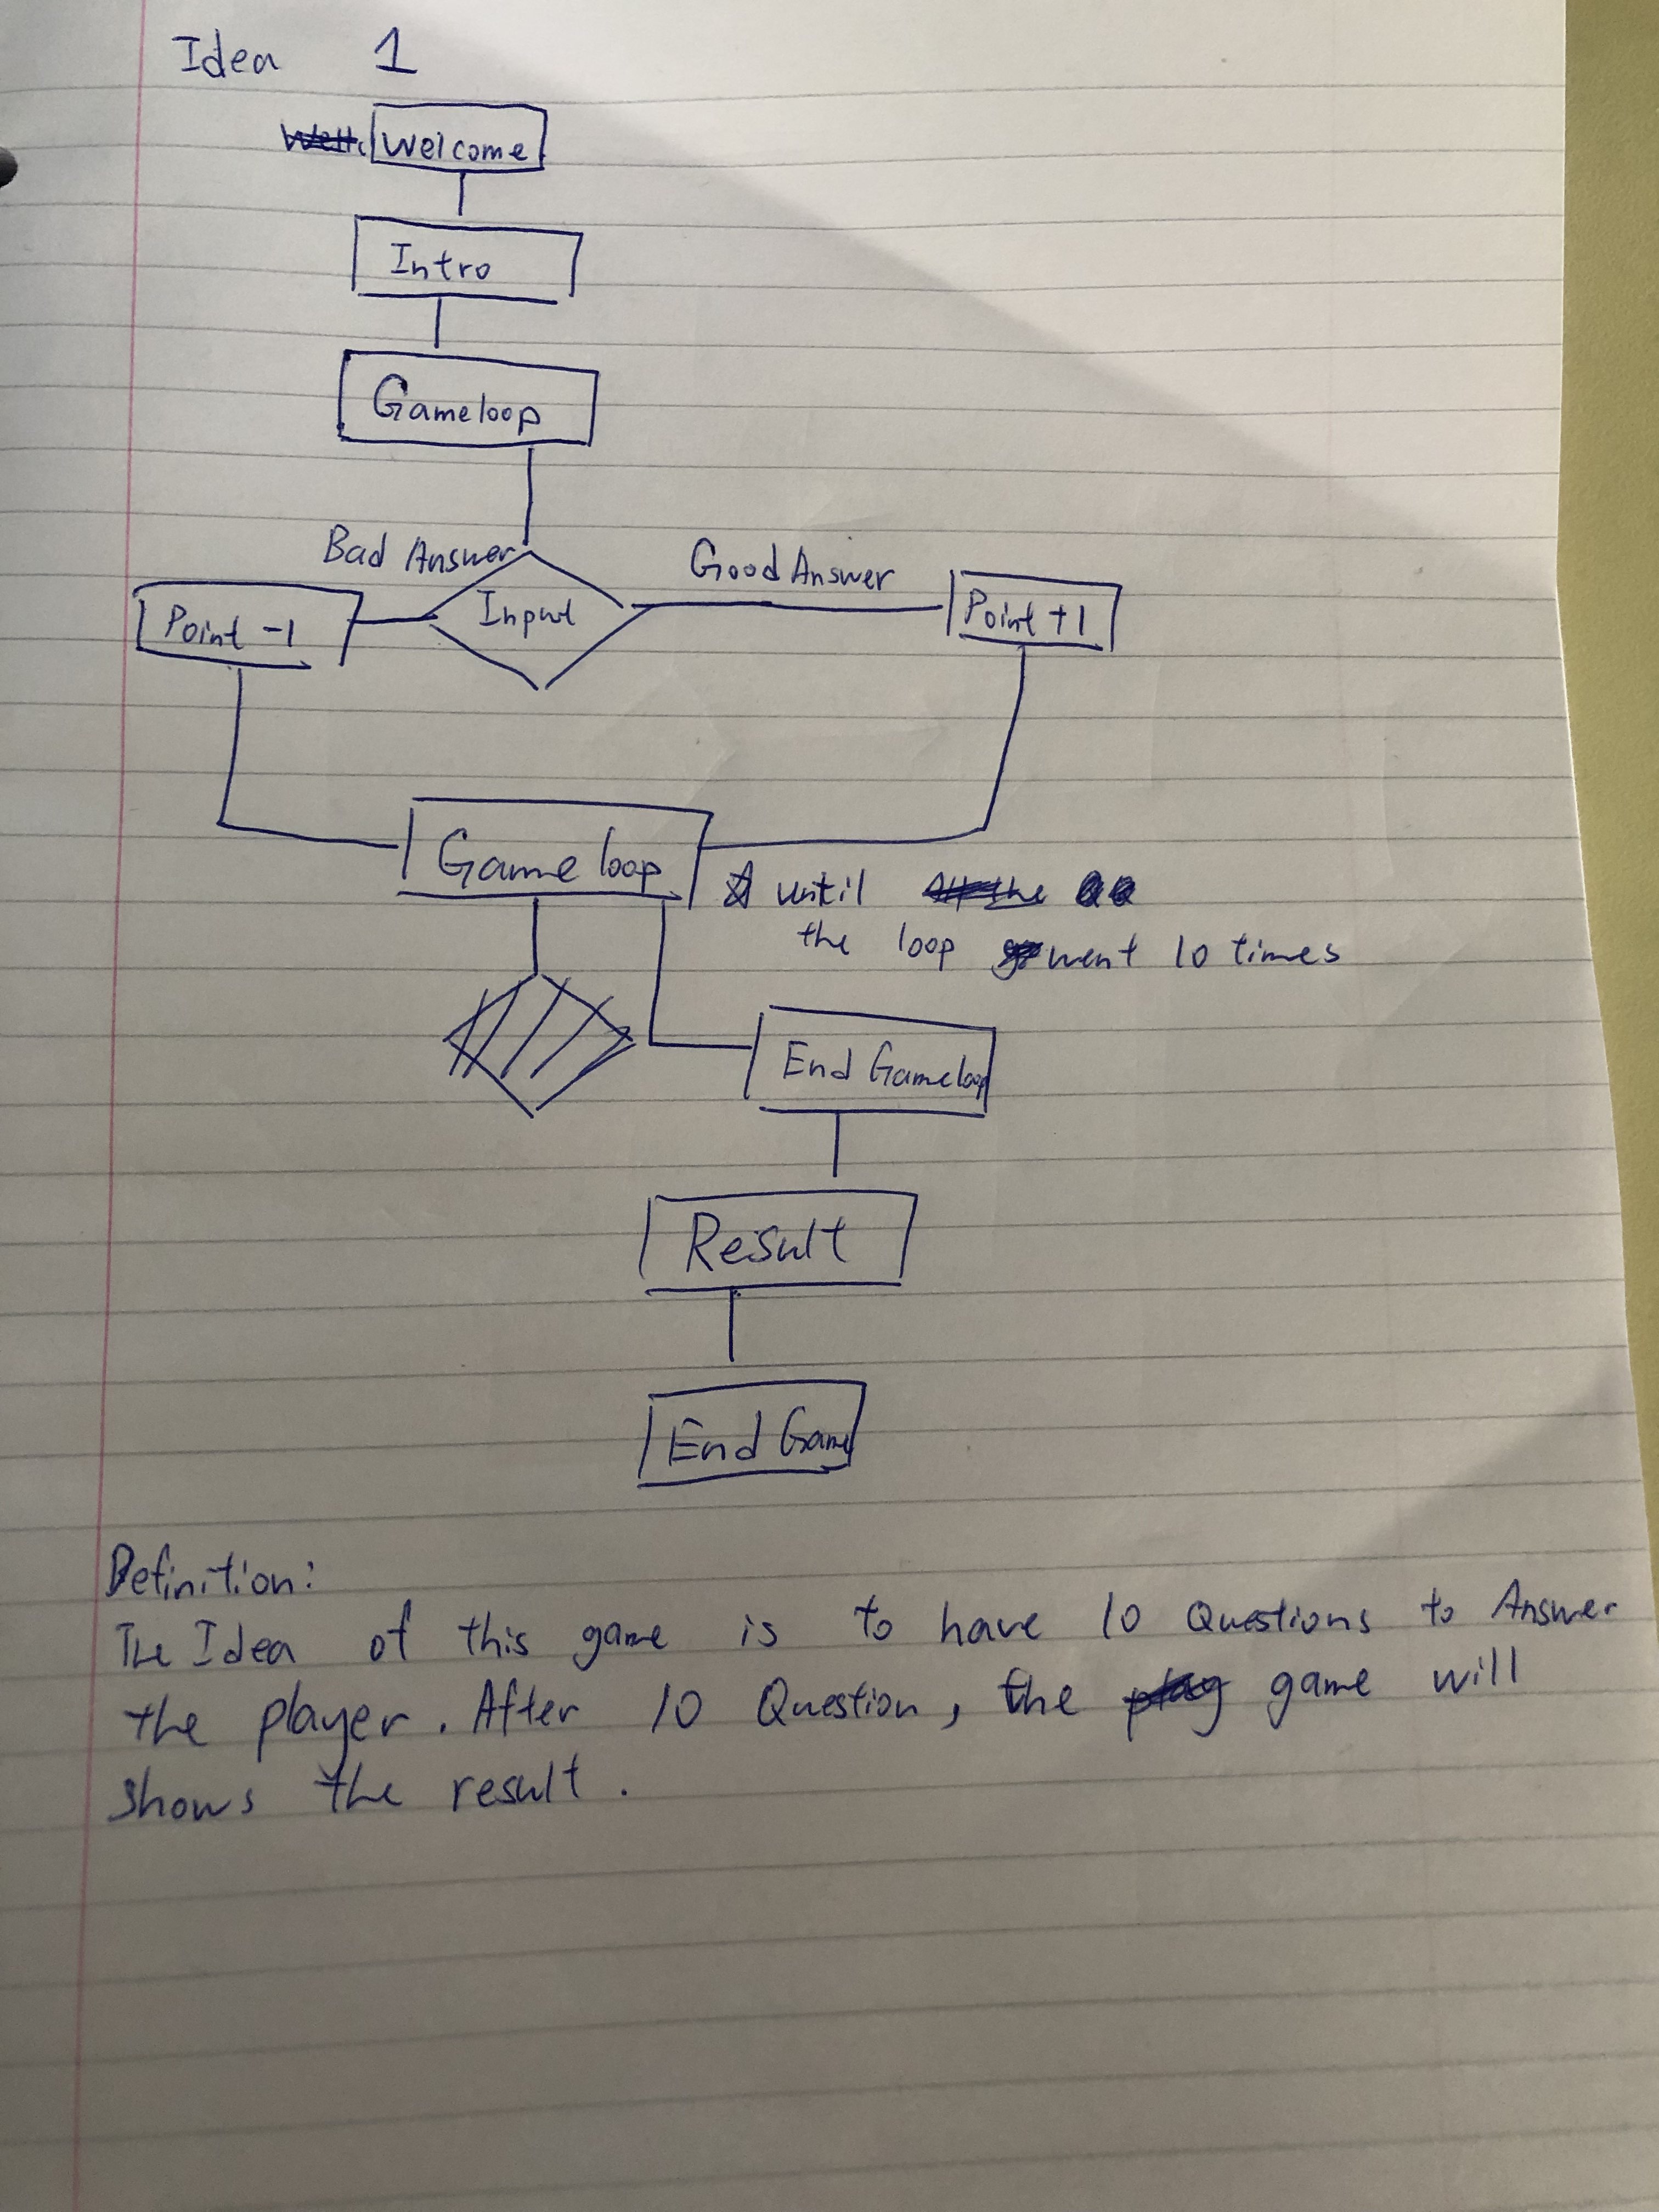 Idea 1
Welcome
Intro
Gameloop
Bad Answer
Good Answer
Point -1
Input
Point +1
Game loop
until
the loop went 10 times
End Gameloop
Result
End Game
Definition:
The Idea of this game is to have 10 Questions to Answer
the player. After 10 Question, the game will
shows the result.